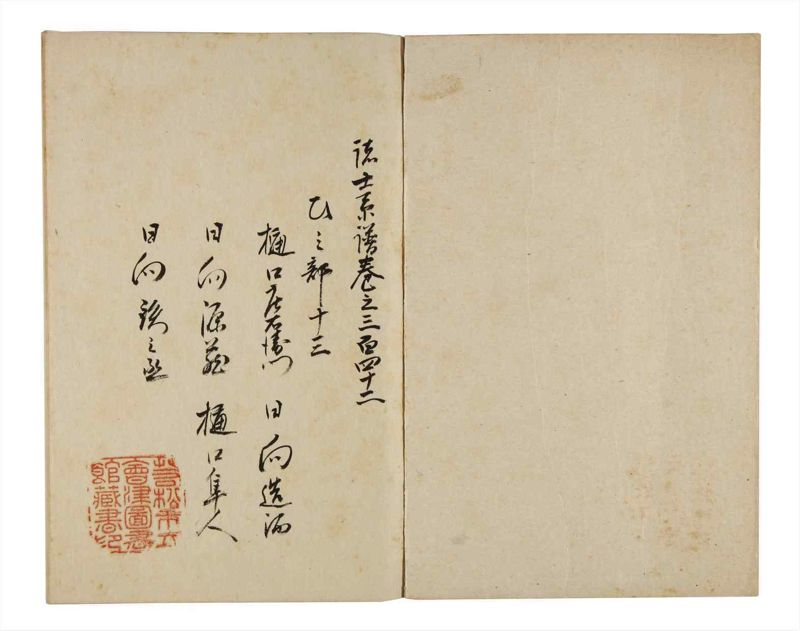 諸士系譜巻之三百四十二
ひ之部十三
樋口庄右衛門 日向造酒
日向源蔵 樋口隼人
日向 之丞
若松市立
會津圖書
館藏書印